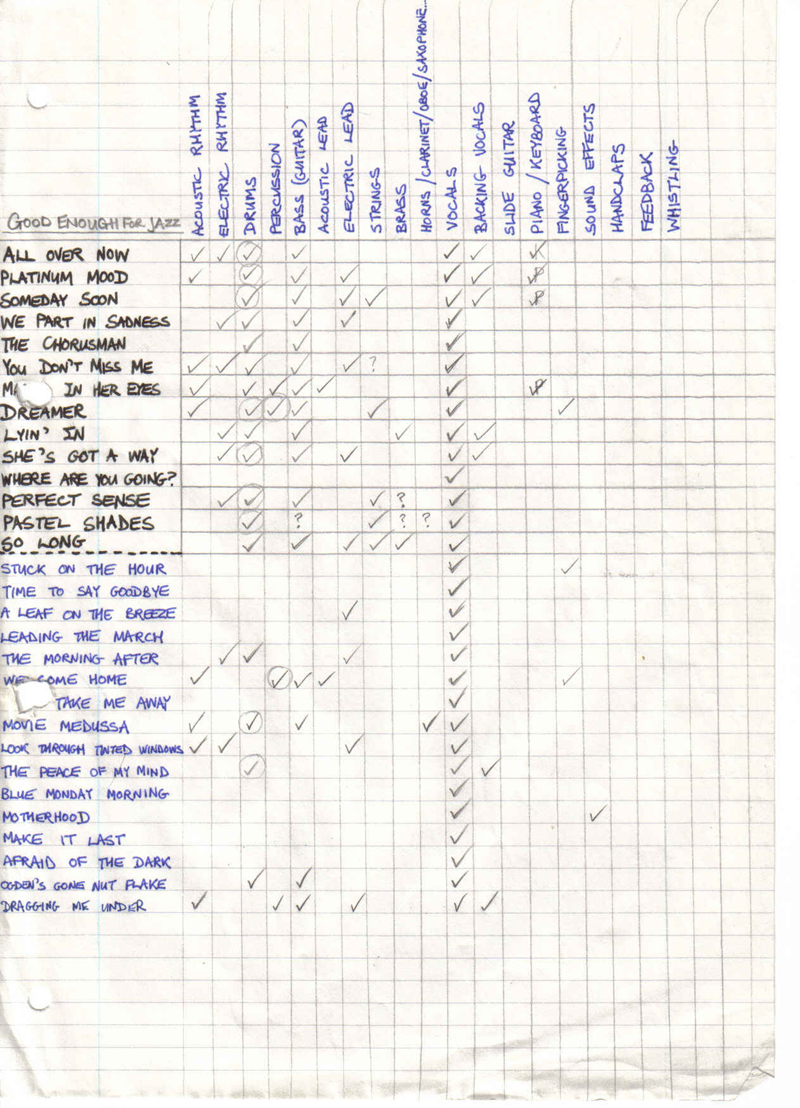 GOOD ENOUGH FOR JAZZ
ACOUSTIC RHYTHM
ELECTRIC RHYTHM
DRUMS
PERCUSSION
BASS (GUITAR)
ACOUSTIC LEAD
ELECTRIC LEAD
STRINGS
BRASS
HORNS/CLARINET/OBOE/SAXOPHONE...
VOCALS
BACKING VOCALS
SLIDE GUITAR
PIANO/KEYBOARD
FINGERPICKING
SOUND EFFECTS
HANDCLAPS
FEEDBACK
WHISTLING
ALL OVER NOW
PLATINUM MOOD
SOMEDAY SOON
WE PART IN SADNESS
THE CHORUSMAN
YOU DON'T MISS ME ?
IN HER EYES
DREAMER
LYIN' IN
SHE'S GOT A WAY
WHERE ARE YOU GOING?
PERFECT SENSE ?
PASTEL SHADES ? ? ?
SO LONG
STUCK ON THE HOUR
TIME TO SAY GOODBYE
A LEAF ON THE BREEZE
LEADING THE MARCH
THE MORNING AFTER
WELCOME HOME
TAKE ME AWAY
MOVIE MEDUSSA
LOOK THROUGH TINTED WINDOWS
THE PEACE OF MY MIND
BLUE MONDAY MORNING
MOTHERHOOD
MAKE IT LAST
AFRAID OF THE DARK
OGDEN'S GONE NUT FLAKE
DRAGGING ME UNDER